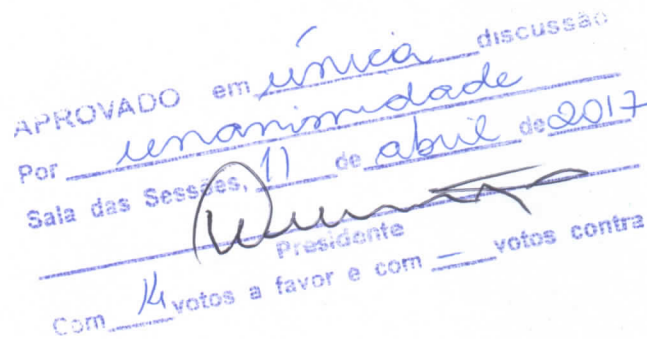 APROVADO em única discussão
Por unanimidade
Sala das Sessões, 11 de abril de 2017
Presidente
Com 14 votos a favor e com — votos contra